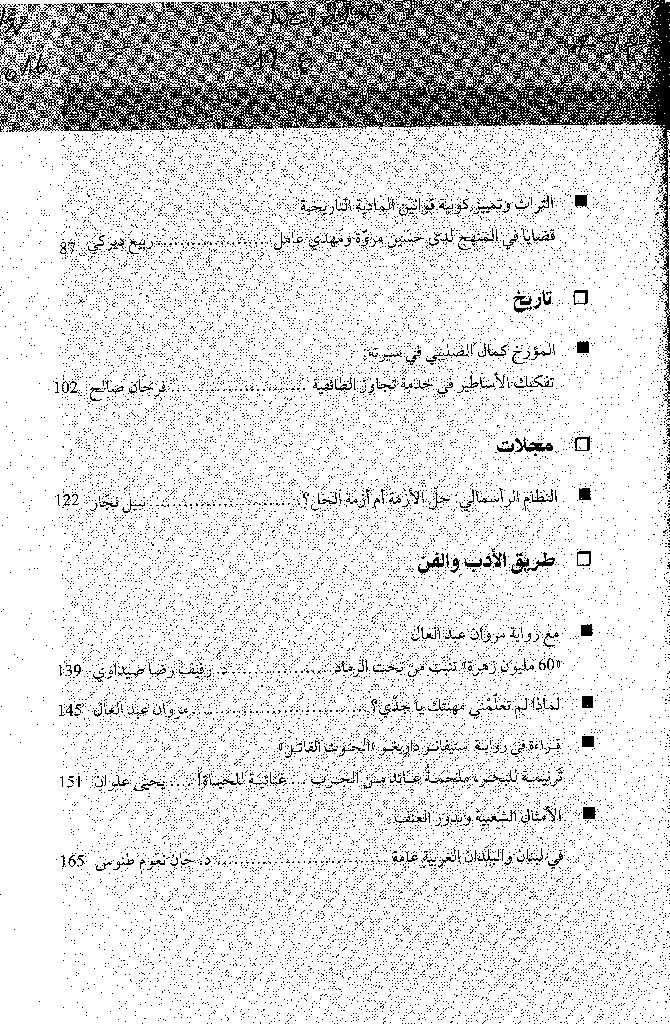 ■ التراث وتمييز كونية قوانين المادية التاريخية
قضايا في المنهج لدى حسين مروّة ومهدي عامل ..................... ربيع ديركي 87
❒ تاريخ
■ المؤرخ كمال الصليبي في سيرته:
تفكيك الأساطير في خدمة تجاوز الطائفية ..................... فرحان صالح 102
❒ مجلات
■ النظام الرأسمالي: حل الأزمة أم أزمة الحل؟ ..................... نبيل نجار 122
❒ طريق الأدب والفن
■ مع رواية مروان عبد العال
«60 مليون زهرة» تنبت من تحت الرماد ............... د. رفيف رضا صيداوي 139
■ لماذا لم تعلّمني مهنتك يا جدّي؟ ........................ مروان عبد العال 145
■ قراءة في رواية ستيفانو داريغو «الحوت القاتل»
ترنيمة للبحر، ملحمةُ عائد من الحرب ... غنائية للحياة! .... يحيى علوان 151
■ الأمثال الشعبية وبذور العنف
في لبنان والبلدان العربية عامة ..................... د. جان نعّوم طنوس 165